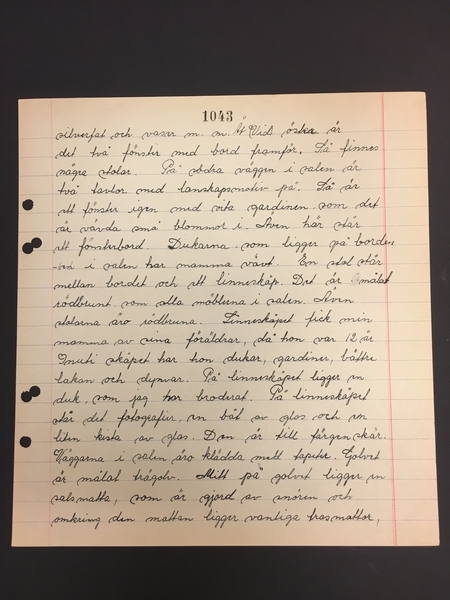 1043
silverfat och vaser m. m. Åt Vid östra är
det två fönster med bord framför. Så finnes
några stolar. På södra väggen i salen är
två tavlor med lanskapsmotiv på. Så är
ett fönster igen med vita gardinen som det
är vävda små blommor i. Även här står
ett fönsterbord. Dukarna som ligger på borden
i salen har mamma vävt. En stol står
mellan bordet och ett linneskåp. Det är målat
rödbrunt som alla möblerna i salen. Även
stolarna äro rödbruna. Linneskåpet fick min
mamma av sina föräldrar, då hon var 12 år
Inuti skåpet har hon dukar, gardiner, bättre
lakan och dynvar. På linneskåpet ligger en
duk, som jag har broderat. På linneskåpet
står det fotografier, en båt av glas och en
liten kista av glas. Den är till färgen skär.
Väggarna i salen äro klädda mett tapeter. Golvet
är målat trägolv. Mitt på golvet ligger en
salsmatta, som är gjord av snören och
omkring den mattan ligger vanliga trasmattor,